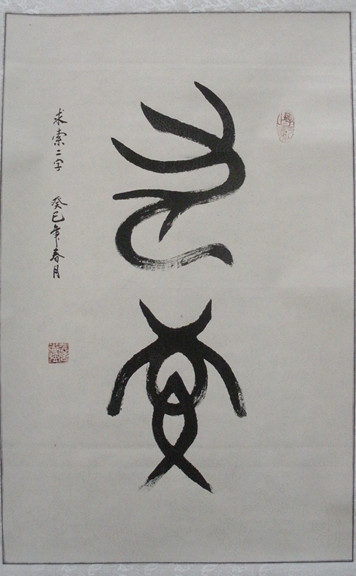 求索
求索二字 癸巳年春月